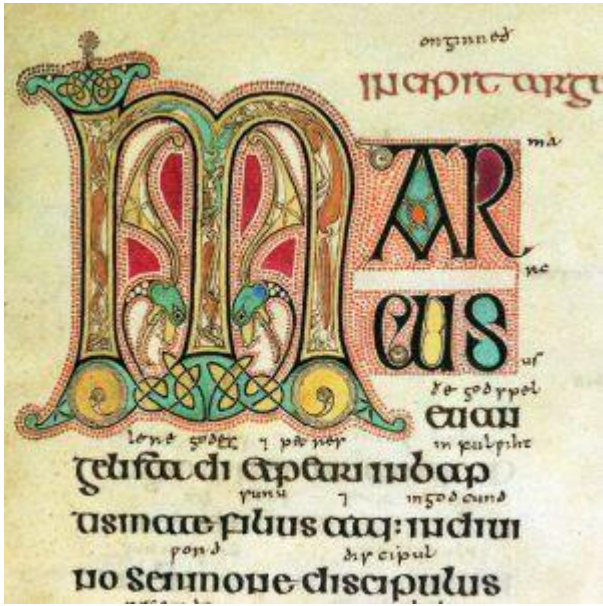 onginneð
INCIPIT ARGU
MAR
ma
CUS
us
ðe godspel
euan
godes 7
gelista di et petri in bap
sunu 7 in godcund
tismate filius atq: in diui
discipul
no sermone discipulus